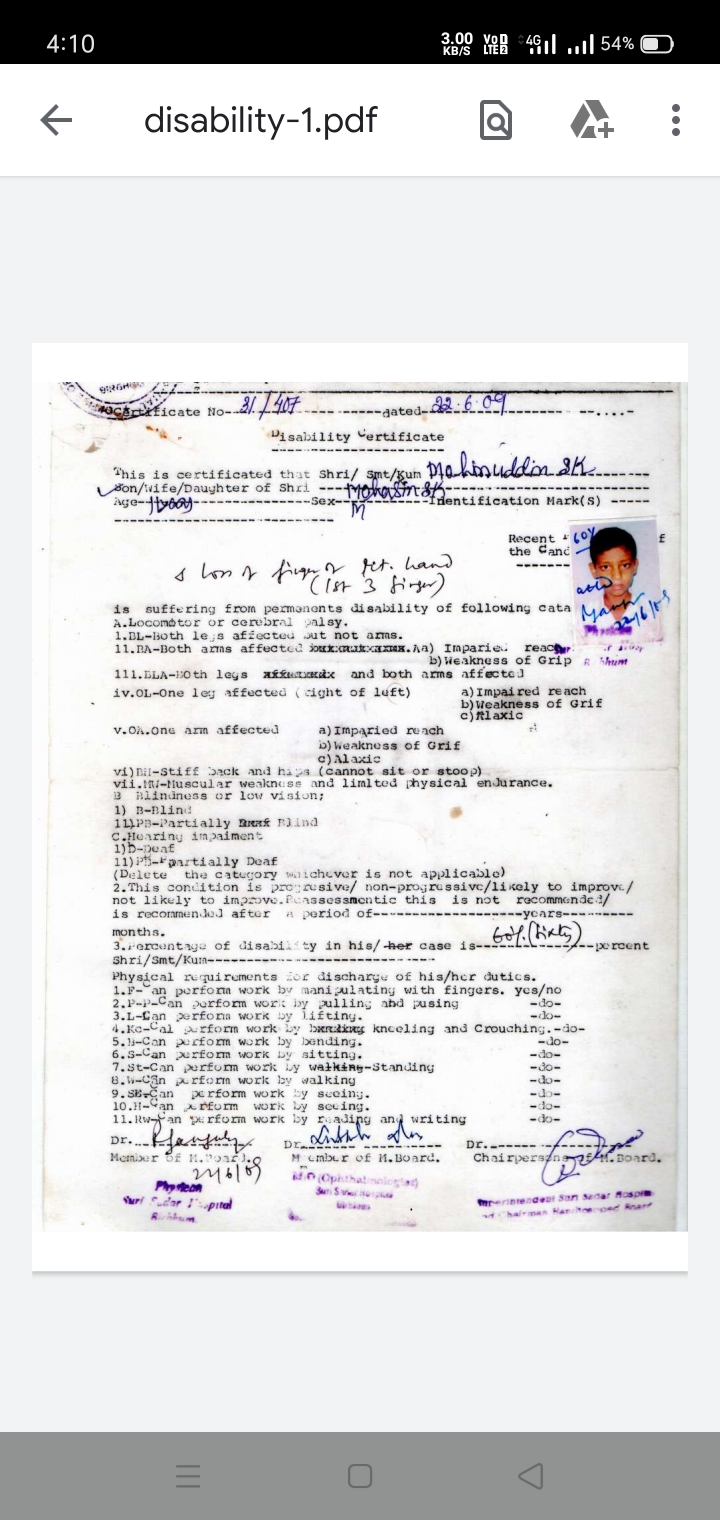 4:10 3.00 KB/S VoD LTE2 4G 54%
disability-1.pdf
Certificate No--31/407-----------dated--22.6.09-------- --....-
Disability Certificate
This is certificated that Shri/ Smt/Kum Mohinuddin SK
Son/Wife/Daughter of Shri Mohasin SK
Age- Sex- M Identification Mark(S) -----
Recent
the Cand
60%
loss of finger of rt. hand
(1st 3 finger)
is suffering from permanents disability of following cata
A.Locomotor or cerebral palsy.
1.BL-Both legs affected but not arms.
11.BA-Both arms affected a) Imparied reach
b)Weakness of Grip
111.BLA-Both legs and both arms affected
iv.OL-One leg affected (right of left) a)Impaired reach
b)Weakness of Grif
c)Alaxic
v.OA.One arm affected a)Imparied reach
b)Weakness of Grif
c)Alaxic
vi)BH-Stiff back and hips (cannot sit or stoop)
vii.MW-Muscular weakness and limlted physical endurance.
B Blindness or low vision;
1) B-Blind
11)PB-Partially Blind
C.Hearing impaiment
1)D-Deaf
11)PD-Partially Deaf
(Delete the category whichever is not applicable)
2.This condition is progresive/ non-progressive/likely to improve/
not likely to improve. this is not recommended/
is recommended after a period of----------------years--------
months.
3.Percentage of disability in his/ her case is 60% (Sixty) percent
Shri/Smt/Kum--------------------------
Physical requirements for discharge of his/her dutics.
1.F-Can perform work by manipulating with fingers. yes/no
2.P-P-Can perform work by pulling abd pusing -do-
3.L-Can perform work by lifting. -do-
4.Kc-Cal perform work by kneeling and Crouching.-do-
5.B-Can perform work by bending. -do-
6.S-Can perform work by sitting. -do-
7.St-Can perform work by walking-Standing -do-
8.W-Can perform work by walking -do-
9.SE-Can perform work by seeing. -do-
10.H-Can perform work by seeing. -do-
11.Rw-Can perform work by reading and writing -do-
Dr. Dr. Dr.
Member of M.Board. Member of M.Board. Chairperson of M.Board.
22/6/09
Physican M.D(Ophthalmologist)
Suri Sadar Hospital Suri Sadar Hospital Superintendent Suri Sadar Hospital
Birbhum